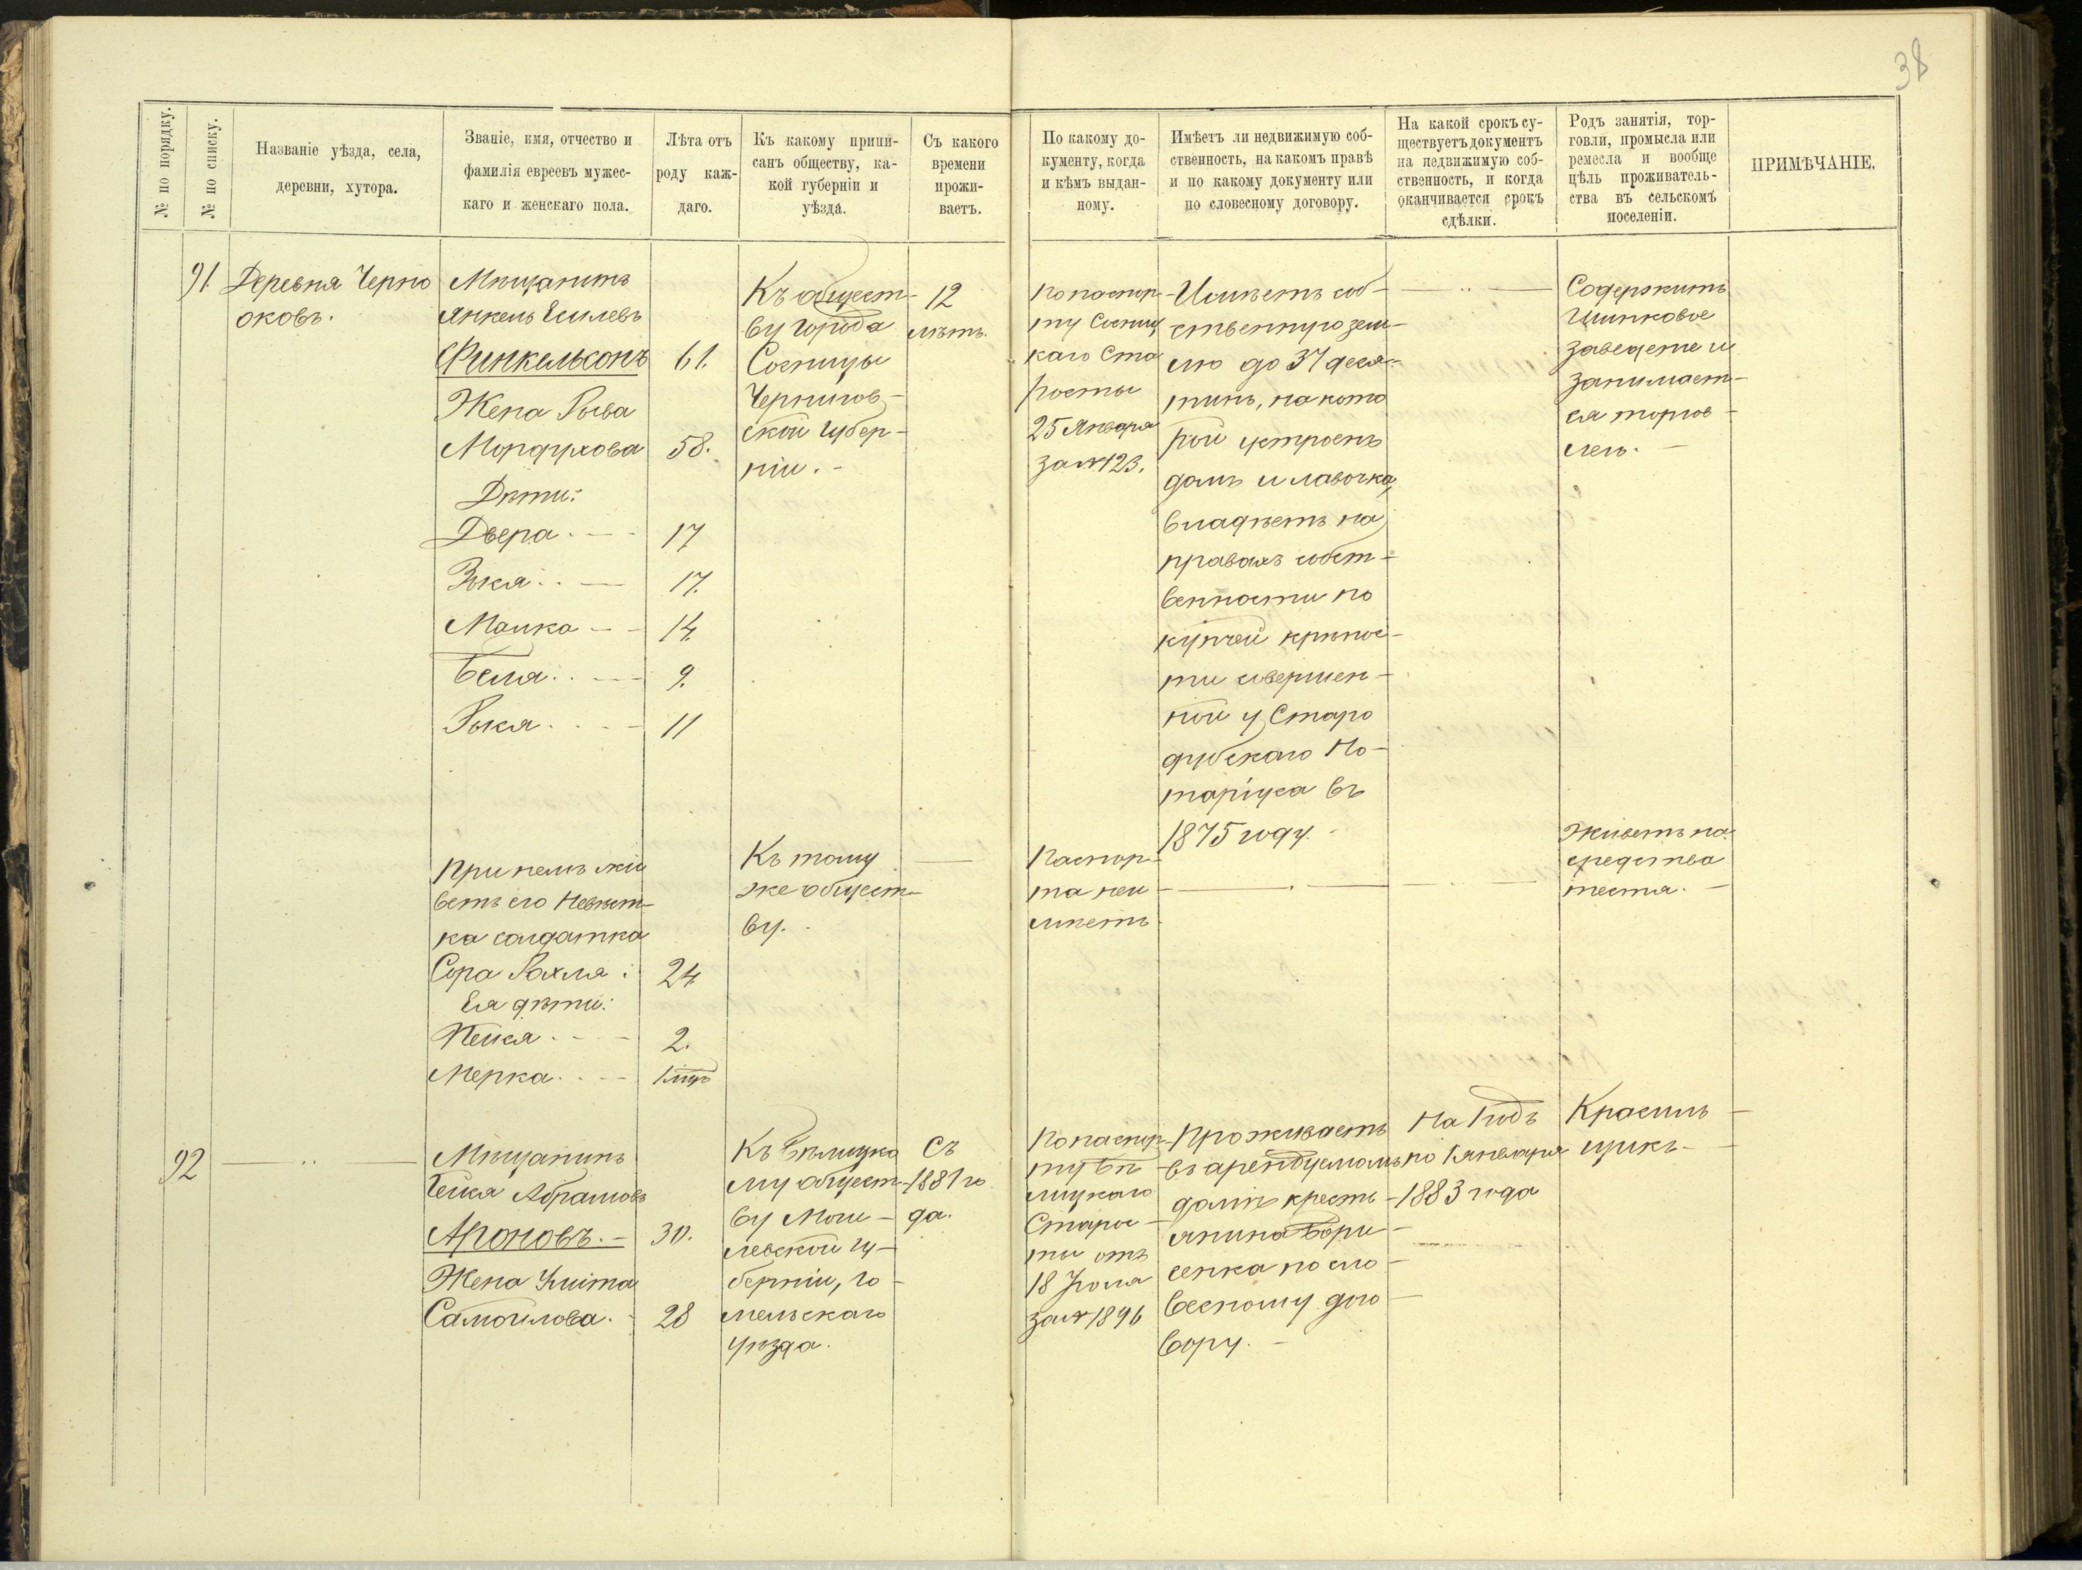 38
№ по порядку.
№ по списку.
Названіе уѣзда, села,
деревни, хутора.
Званіе, имя, отчество и
фамилія евреевъ мужес-
каго и женскаго пола.
Лѣта отъ
роду каж-
даго.
Къ какому припи-
санъ обществу, ка-
кой губерніи и
уѣзда.
Съ какого
времени
прожи-
ваетъ.
По какому до-
кументу, когда
и кѣмъ выдан-
ному.
Имѣетъ ли недвижимую соб-
ственность, на какомъ правѣ
и по какому документу или
по словесному договору.
На какой срокъ су-
ществуетъ документъ
на недвижимую соб-
ственность, и когда
оканчивается срокъ
сдѣлки.
Родъ занятія, тор-
говли, промысла или
ремесла и вообще
цѣль проживатель-
ства въ сельскомъ
поселеніи.
ПРИМѢЧАНІЕ.
91
Деревня Черно
оковъ.
Мѣщанинъ
Янкель
Финкельсонъ
61.
Жена Рыва
Мордухова
58.
Дѣти:
Двера
17
Зыкя
17.
Малка
14
Беля
9.
Рыкя
11
Къ общест-
ву города
Сосницы
Чернигов-
ской губер-
ніи.
12
лѣтъ.
По паспор-
ту Сосниц
каго Ста
росты
25 Января
за № 123.
Имѣетъ соб-
ственную зем-
лю до 37 деся-
тинъ, на кото
рой устроенъ
домъ и лавочка,
владѣетъ на
правахъ собст-
венности по
купчей крѣпос-
ти совершен-
ной у Старо
дубскаго Но-
таріуса въ
1875 году.
Содержитъ
Шинковое
заведеніе и
занимает-
ся торгов-
лею.
При немъ жи
ветъ его Невѣст-
ка солдатка
Сора Рахля
24
Ея дѣти:
Пейся
2.
Мерка
1 мцъ
Къ тому
же общест-
ву.
Паспор-
та не и
мѣетъ
Живетъ на
средства
тестя.
92
Мѣщанинъ
Абрамовъ
Ароновъ.
30.
Жена
Самойлова.
28
Къ Бѣлицко
му общест-
ву Моги-
левской гу-
берніи, Го-
мельскаго
уѣзда.
Съ
1881 го
да.
По паспор-
ту Бѣ
лицкаго
Старос-
ты отъ
18 Іюля
за № 1896
Проживаетъ
въ арендуемомъ
домѣ кресть-
янина Бори-
сенка по сло-
весному дого-
вору.
На годъ
по 1 Января
1883 года
Красиль-
щикъ